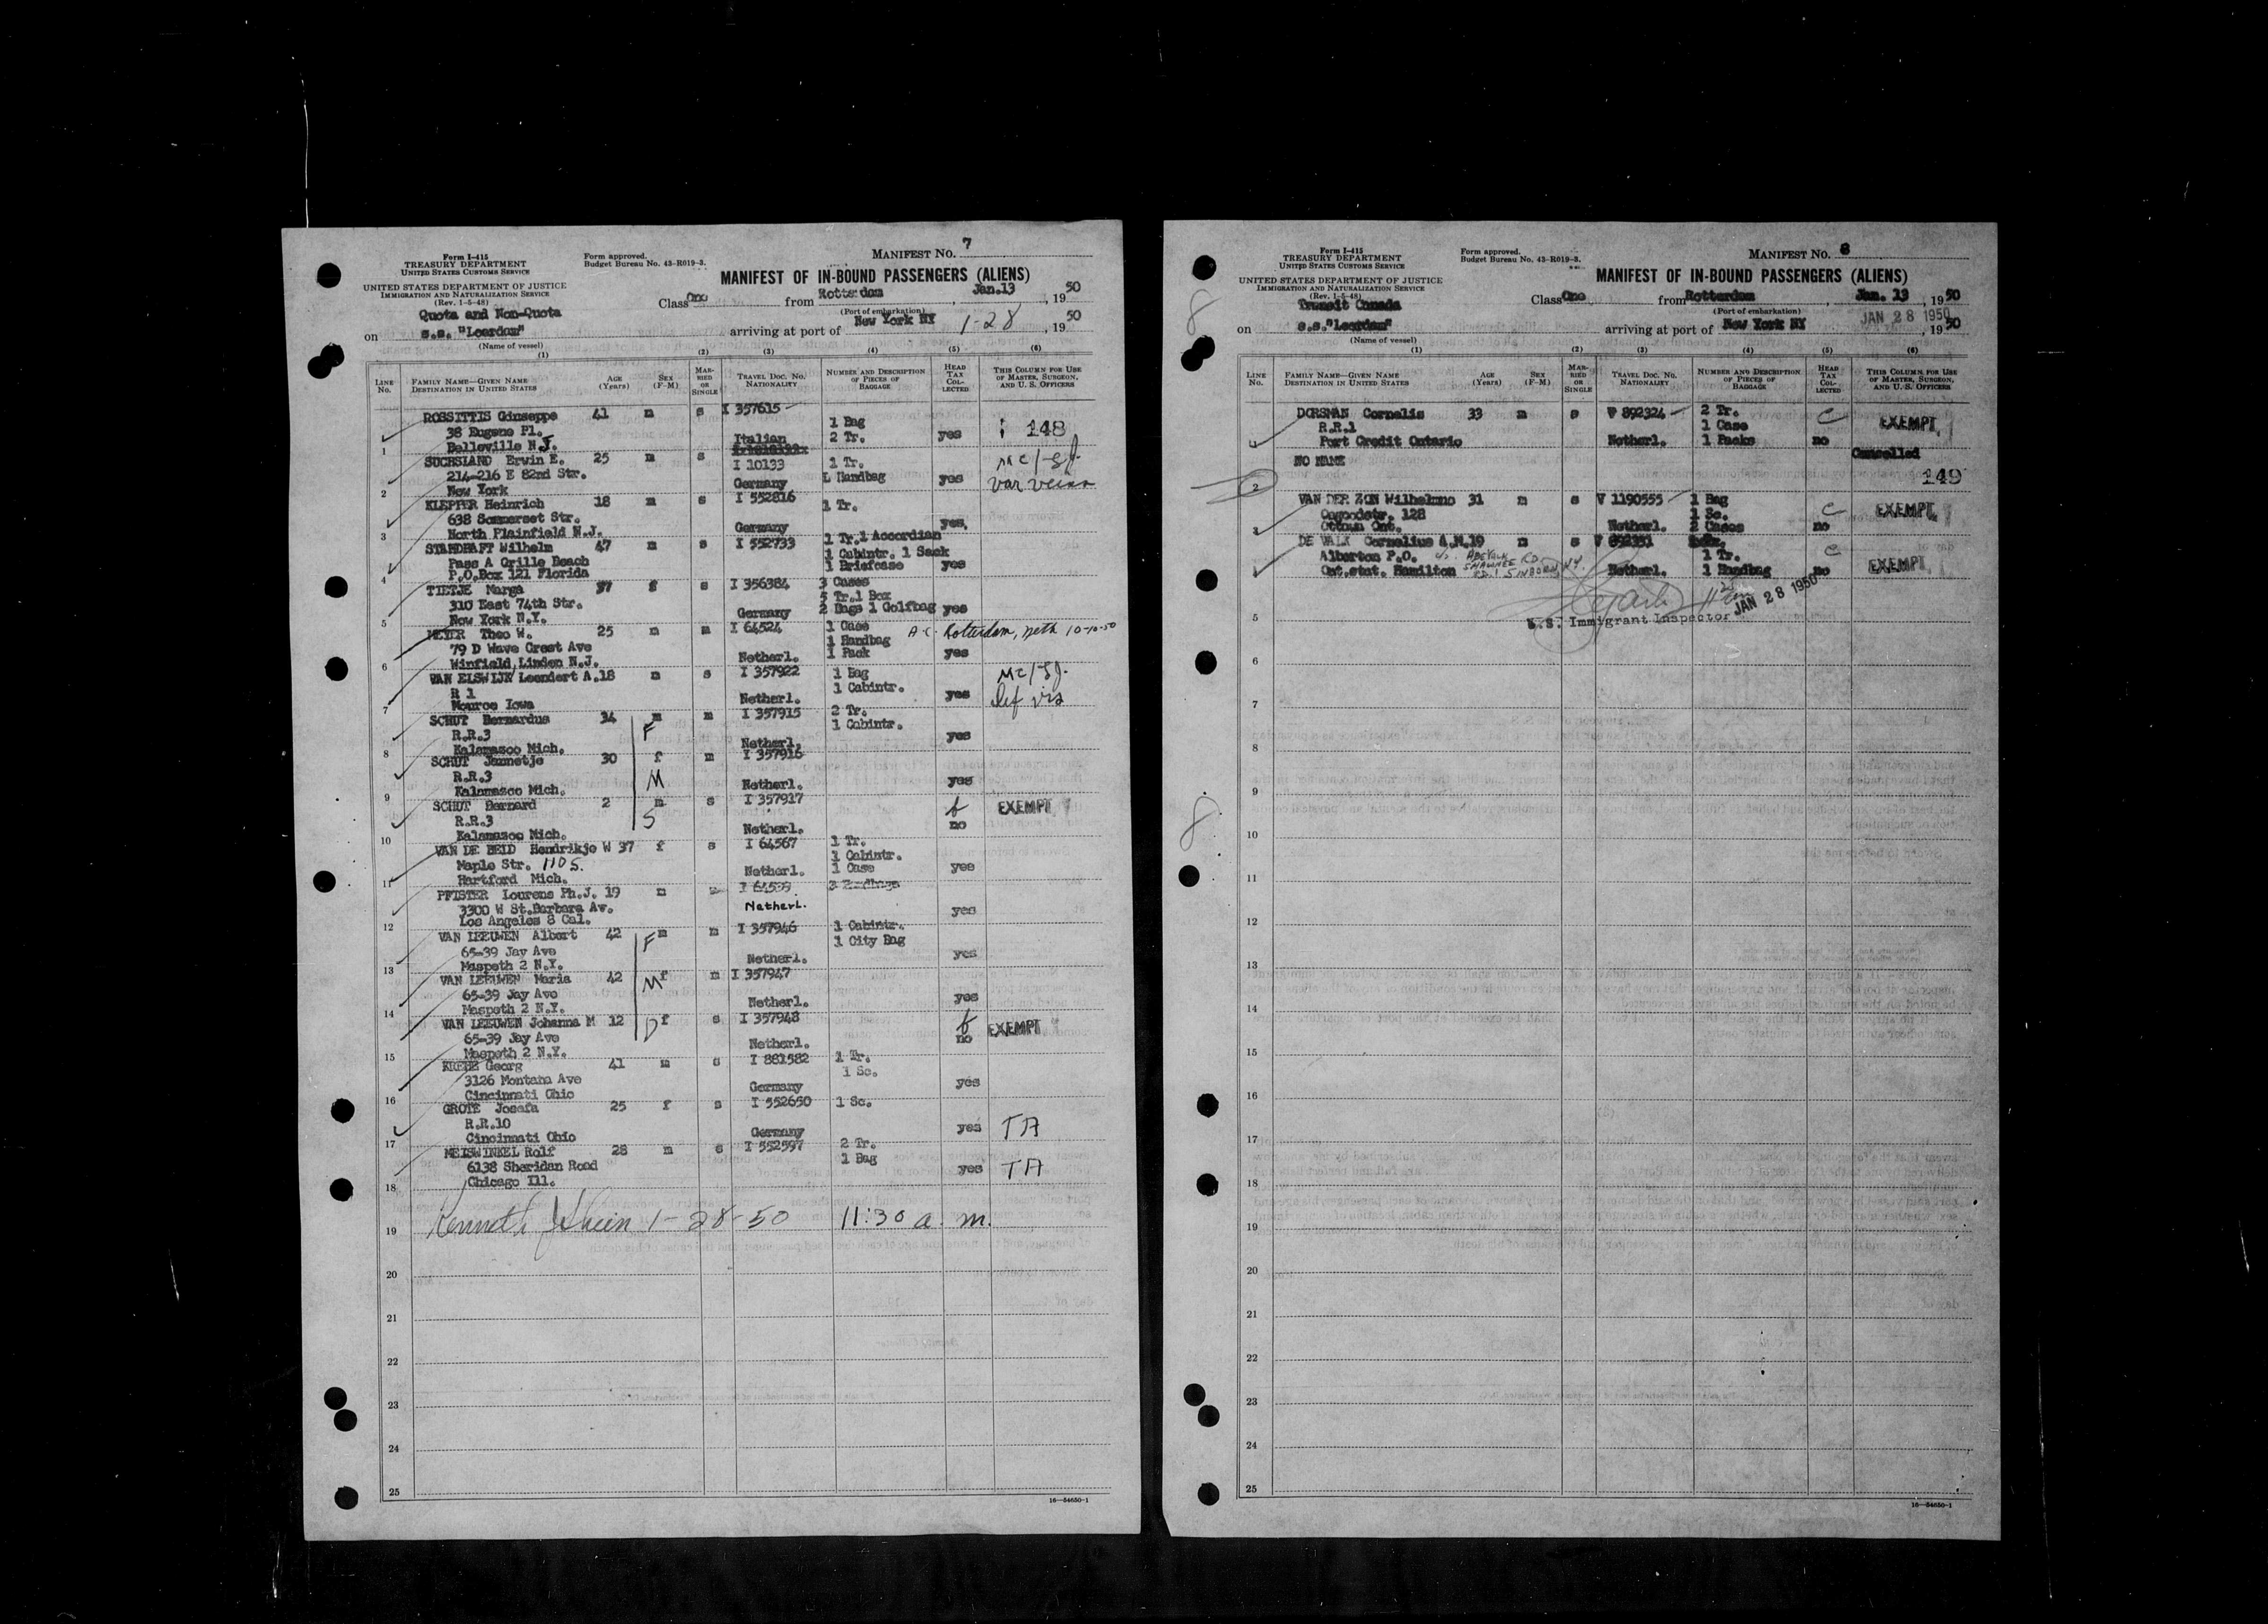 Form I-415
TREASURY DEPARTMENT
UNITED STATES CUSTOMS SERVICE
Form approved.
Budget Bureau No. 43-R019-3.
MANIFEST NO. 7
UNITED STATES DEPARTMENT OF JUSTICE
IMMIGRATION AND NATURALIZATION SERVICE
(Rev. 1-5-48)
MANIFEST OF IN-BOUND PASSENGERS (ALIENS)
Quota and Non-Quota
Class One from Rotterdam, Jan.13, 1950
(Port of embarkation)
on s.s. "Leerdam" arriving at port of New York NY 1-28, 1950
(Name of vessel)
(1) (2) (3) (4) (5) (6)
LINE No. FAMILY NAME—GIVEN NAME DESTINATION IN UNITED STATES AGE (Years) SEX (F-M) MARRIED OR SINGLE TRAVEL DOC. NO. NATIONALITY NUMBER AND DESCRIPTION OF PIECES OF BAGGAGE HEAD TAX COLLECTED THIS COLUMN FOR USE OF MASTER, SURGEON, AND U. S. OFFICERS
ROSSITTIS Giuseppe 41 m s I 357615
38 Eugene Pl. 1 Bag
1 Belleville N.J. Italian 2 Tr. yes 148
SUCHSLAND Erwin E. 25 m s I 10133 1 Tr.
214-216 E 82nd Str.
2 New York Germany 1 Handbag yes
KLEPPER Heinrich 18 m s I 552816 1 Tr.
638 Sommerset Str.
3 North Plainfield N.J. Germany yes,
STANDHAFT Wilhelm 47 m s I 552733 1 Tr.1 Accordian
Pass A Grille Beach 1 Cabintr. 1 Sack
4 P.O.Box 121 Florida 1 Briefcase yes
TIETJE Marga 37 f s I 356384 3 Cases
310 East 74th Str. 5 Tr.1 Box
5 New York N.Y. Germany 2 Bags 1 Golfbag yes
MEYER Theo W. 25 m m I 64524 1 Case
79 D Wave Crest Ave 1 Handbag Rotterdam, Neth 10-10-50
6 Winfield,Linden N.J. Netherl. 1 Pack yes
VAN ELSWIJK Leendert A.18 m s I 357922 1 Bag
R 1 1 Cabintr.
7 Monroe Iowa Netherl. yes
SCHUT Bernardus 34 m m I 357915 2 Tr.
R.R.3 F 1 Cabintr.
8 Kalamazoo Mich. Netherl. yes
SCHUT Jannetje 30 f m I 357916
R.R.3 M
9 Kalamazoo Mich. Netherl. yes
SCHUT Bernard 2 m s I 357917 EXEMPT
R.R.3 S
10 Kalamazoo Mich. Netherl. no
VAN DE BELD Hendrikje W 37 f s I 64567 1 Tr.
Maple Str. 110 S. 1 Cabintr.
11 Hartford Mich. Netherl. 1 Case yes
PFISTER Lourens Ph.J. 19 m
3300 W St.Barbara Av. Netherl.
12 Los Angeles 8 Cal. yes
VAN LEEUWEN Albert 42 m m I 357946 1 Cabintr.
65-39 Jay Ave F 1 City Bag
13 Maspeth 2 N.Y. Netherl. yes
VAN LEEUWEN Maria 42 f m I 357947
65-39 Jay Ave M
14 Maspeth 2 N.Y. Netherl. yes
VAN LEEUWEN Johanna M 12 f s I 357948 EXEMPT
65-39 Jay Ave D
15 Maspeth 2 N.Y. Netherl. no
KREBE Georg 41 m s I 881582 1 Tr.
3126 Montana Ave 1 Sc.
16 Cincinnati Ohio Germany yes
GROTE Josefa 25 f s I 552650 1 Sc.
R.R.10
17 Cincinnati Ohio Germany yes TA
MEISWINKEL Rolf 28 m s I 552597 2 Tr.
6138 Sheridan Road 1 Bag
18 Chicago Ill. yes TA
19 Kenneth 1-28-50 11:30 a.m.
20
21
22
23
24
25
16—54650-1
Form I-415
TREASURY DEPARTMENT
UNITED STATES CUSTOMS SERVICE
Form approved.
Budget Bureau No. 43-R019-3.
MANIFEST NO. 8
UNITED STATES DEPARTMENT OF JUSTICE
IMMIGRATION AND NATURALIZATION SERVICE
(Rev. 1-5-48)
MANIFEST OF IN-BOUND PASSENGERS (ALIENS)
Transit Canada
Class One from Rotterdam, Jan. 13, 1950
(Port of embarkation)
JAN 28 1950
on s.s."Leerdam" arriving at port of New York NY, 1950
(Name of vessel)
(1) (2) (3) (4) (5) (6)
LINE No. FAMILY NAME—GIVEN NAME DESTINATION IN UNITED STATES AGE (Years) SEX (F-M) MARRIED OR SINGLE TRAVEL DOC. NO. NATIONALITY NUMBER AND DESCRIPTION OF PIECES OF BAGGAGE HEAD TAX COLLECTED THIS COLUMN FOR USE OF MASTER, SURGEON, AND U. S. OFFICERS
DORSMAN Cornelis 33 m s V 892324 2 Tr. C
R.R.1 1 Case EXEMPT
1 Port Credit Ontario Netherl. 1 Packs no
NO NAME Cancelled
2 149
VAN DER ZON Wilhelmno 31 m s V 1190555 1 Bag C
Osgoodstr. 128 1 Sc. EXEMPT
3 Ottawa Ont. Netherl. 2 Cases no
DE VALK Cornelius A.M.19 m s V 892351
Alberton P.O. 1 Tr. C
4 Ont.stat. Hamilton SHAWNEE RD. Netherl. 1 Handbag no EXEMPT
JAN 28 1950
5 U.S. Immigrant Inspector
6
7
8
9
10
11
12
13
14
15
16
17
18
19
20
21
22
23
24
25
16—54650-1
8
8